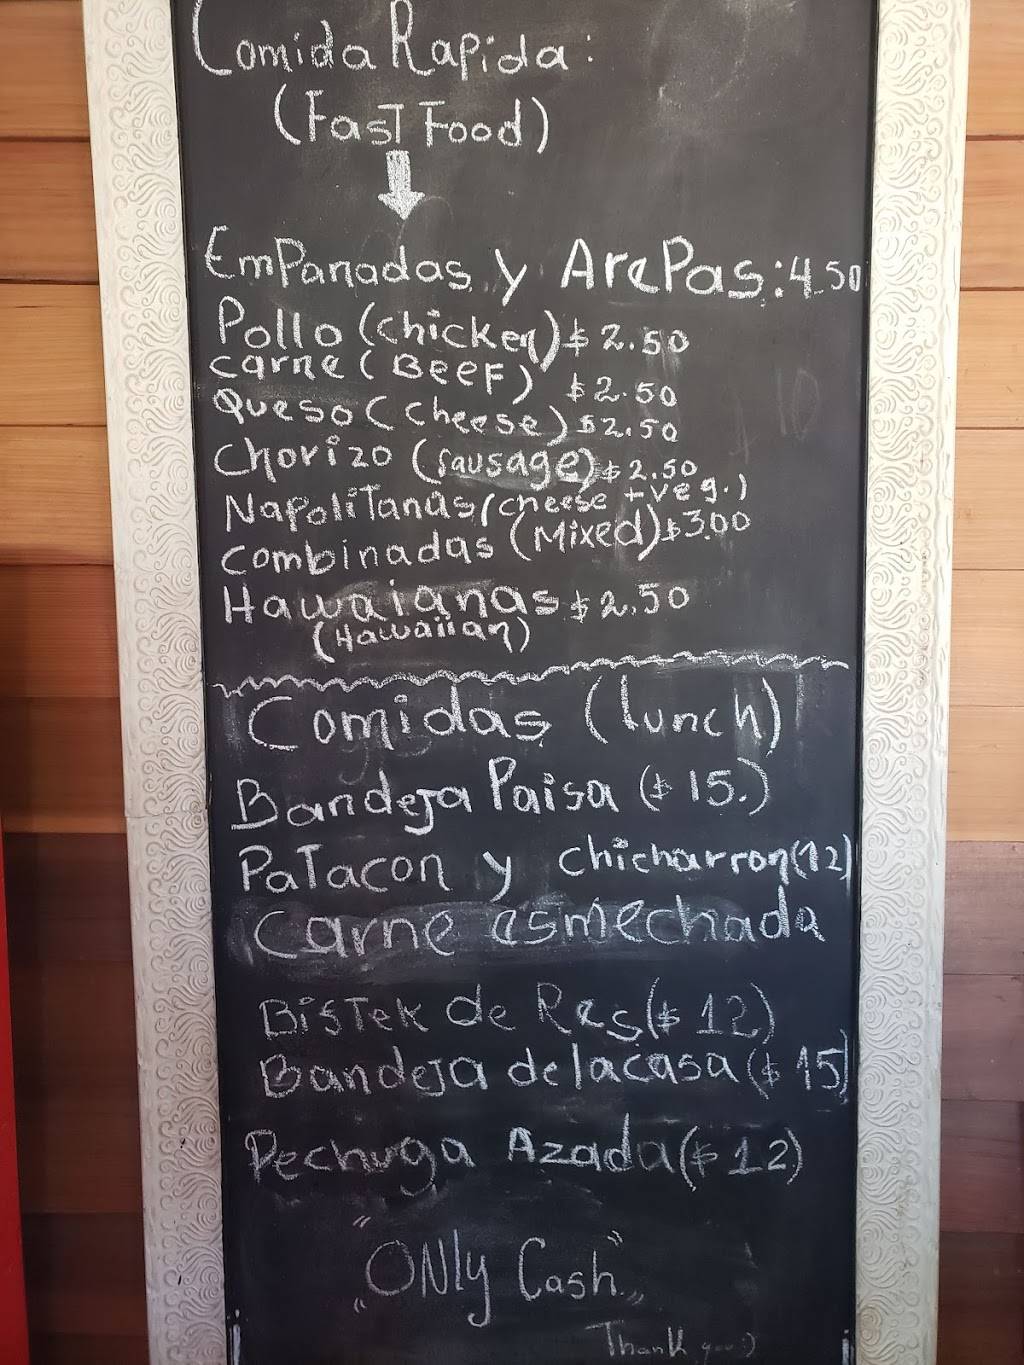 Comida Rapida:
(FasT Food)
EmPanadas y ArePas: 4.50
Pollo (chicken) $ 2.50
carne (BeeF) $ 2.50
Queso (cheese) $2.50
chorizo (sausage) $ 2.50
NapoliTanas (cheese + veg.)
combinadas (Mixed) $3.00
Hawaianas $ 2.50
(Hawaiian)
Comidas (lunch)
Bandeja Paisa ($ 15.)
PaTacon y chicharron (12)
Carne esmechada
BisTek de Res ($ 12)
Bandeja de la casa ($ 15)
Pechuga Azada ($ 12)
"ONly Cash"
Thank you :)